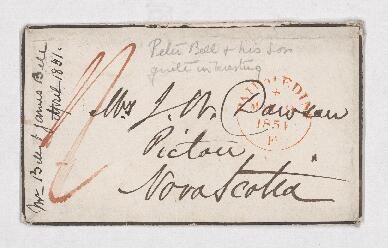 Peter Bell & his son
quite interesting
Mr Bell & James Bell
April 1851.
Mrs J. W. Dawson
Pictou
Nova Scotia
1851